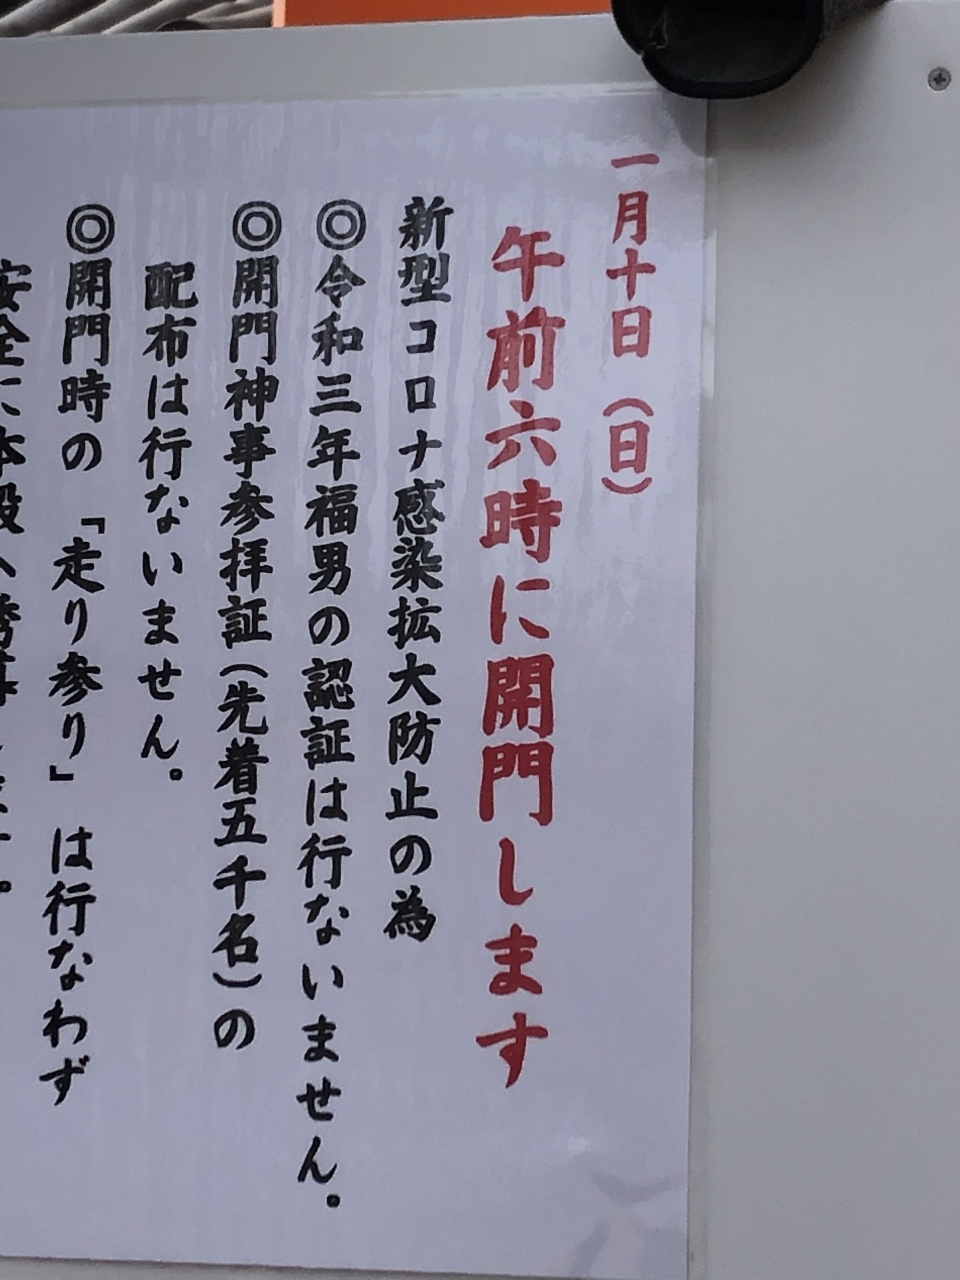 一月十日（日）
午前六時に開門します
新型コロナ感染拡大防止の為
◎令和三年福男の認証は行ないません。
◎開門神事参拝証（先着五千名）の
配布は行ないません。
◎開門時の「走り参り」は行なわず
安全に本殿へ誘導します。